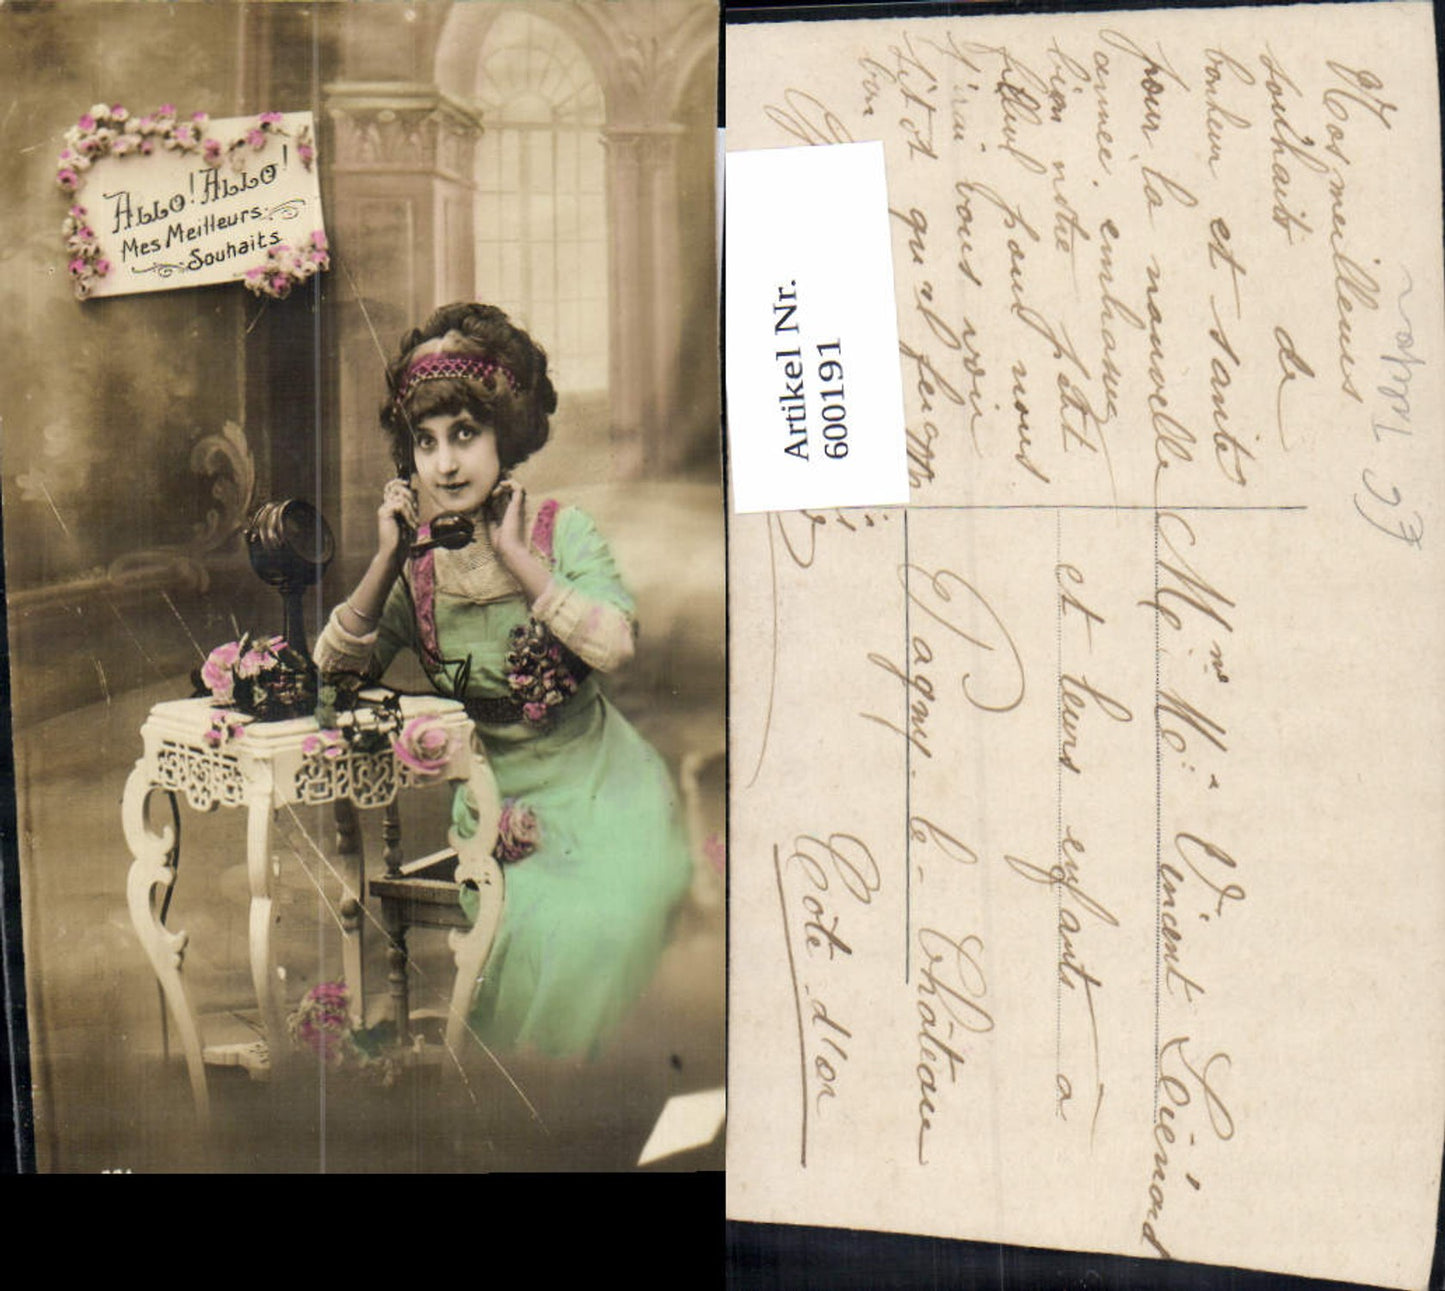 Allo! Allo!
Mes Meilleurs
Souhaits
Artikel Nr.
600191
Nos meilleurs
souhaits de
bonheur et santé
pour la nouvelle
année. embrasse
bien notre petit
filleul pour nous
J'irai vous voir
sitôt qu'il fer
bon
Mr. Me. Vincent Liénard
et leurs enfants a
Pagny-le-Château
Côte-d'or